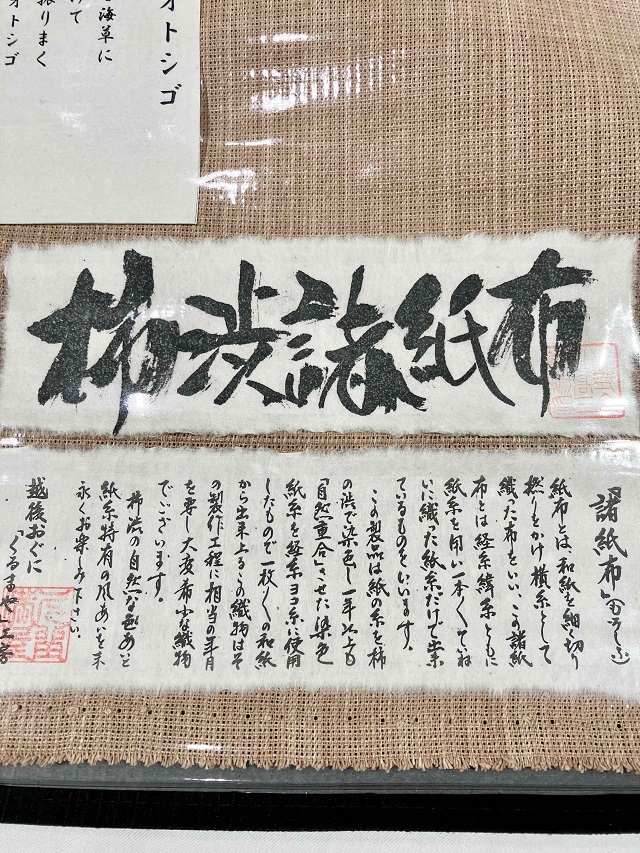 オトシゴ
海草に
けて
振りまく
オトシゴ
柿渋諸紙布
「諸紙布」(もろしふ)
紙布とは、和紙を細く切り
撚りをかけ横糸として
織った布をいい、この諸紙
布とは経糸緯糸ともに
紙糸を用い一本くていね
いに織った紙糸だけで出来
ているものをいいます。
この製品は紙の糸を柿
の渋で染色し一年以上も
「自然重合」させた染色
紙糸を経糸ヨコ糸に使用
したもので一枚くの和紙
から出来上るこの織物はそ
の製作工程に相当の年月
を要し大変希少な織物
でございます。
柿渋の自然な色あいと
紙糸特有の風あいを末
永くお楽しみ下さい。
越後おぐに
「くるまや」工房